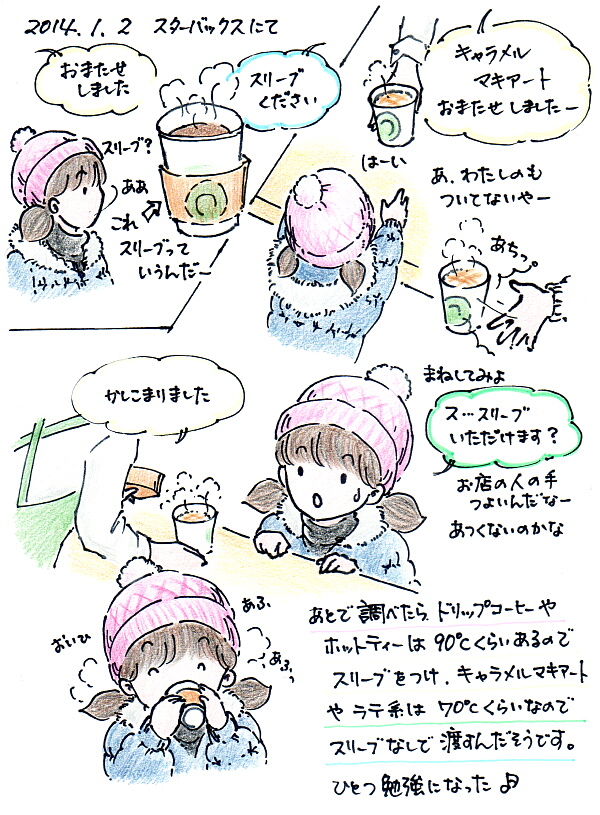 2014.1.2 スターバックスにて
おまたせ
しました
スリーブ
ください
スリーブ?
ああ
これ
スリーブって
いうんだー
キャラメル
マキアート
おまたせしましたー
はーい
あ、わたしのも
ついてないやー
あちっ。
まねしてみよ
ス…スリーブ
いただけます?
かしこまりました
お店の人の手
つよいんだなー
あつくないのかな
おいひ
あふ、
あふっ
あとで調べたら、ドリップコーヒーや
ホットティーは90℃くらいあるので
スリーブをつけ、キャラメルマキアート
やラテ系は70℃くらいなので
スリーブなしで渡すんだそうです。
ひとつ勉強になった♪